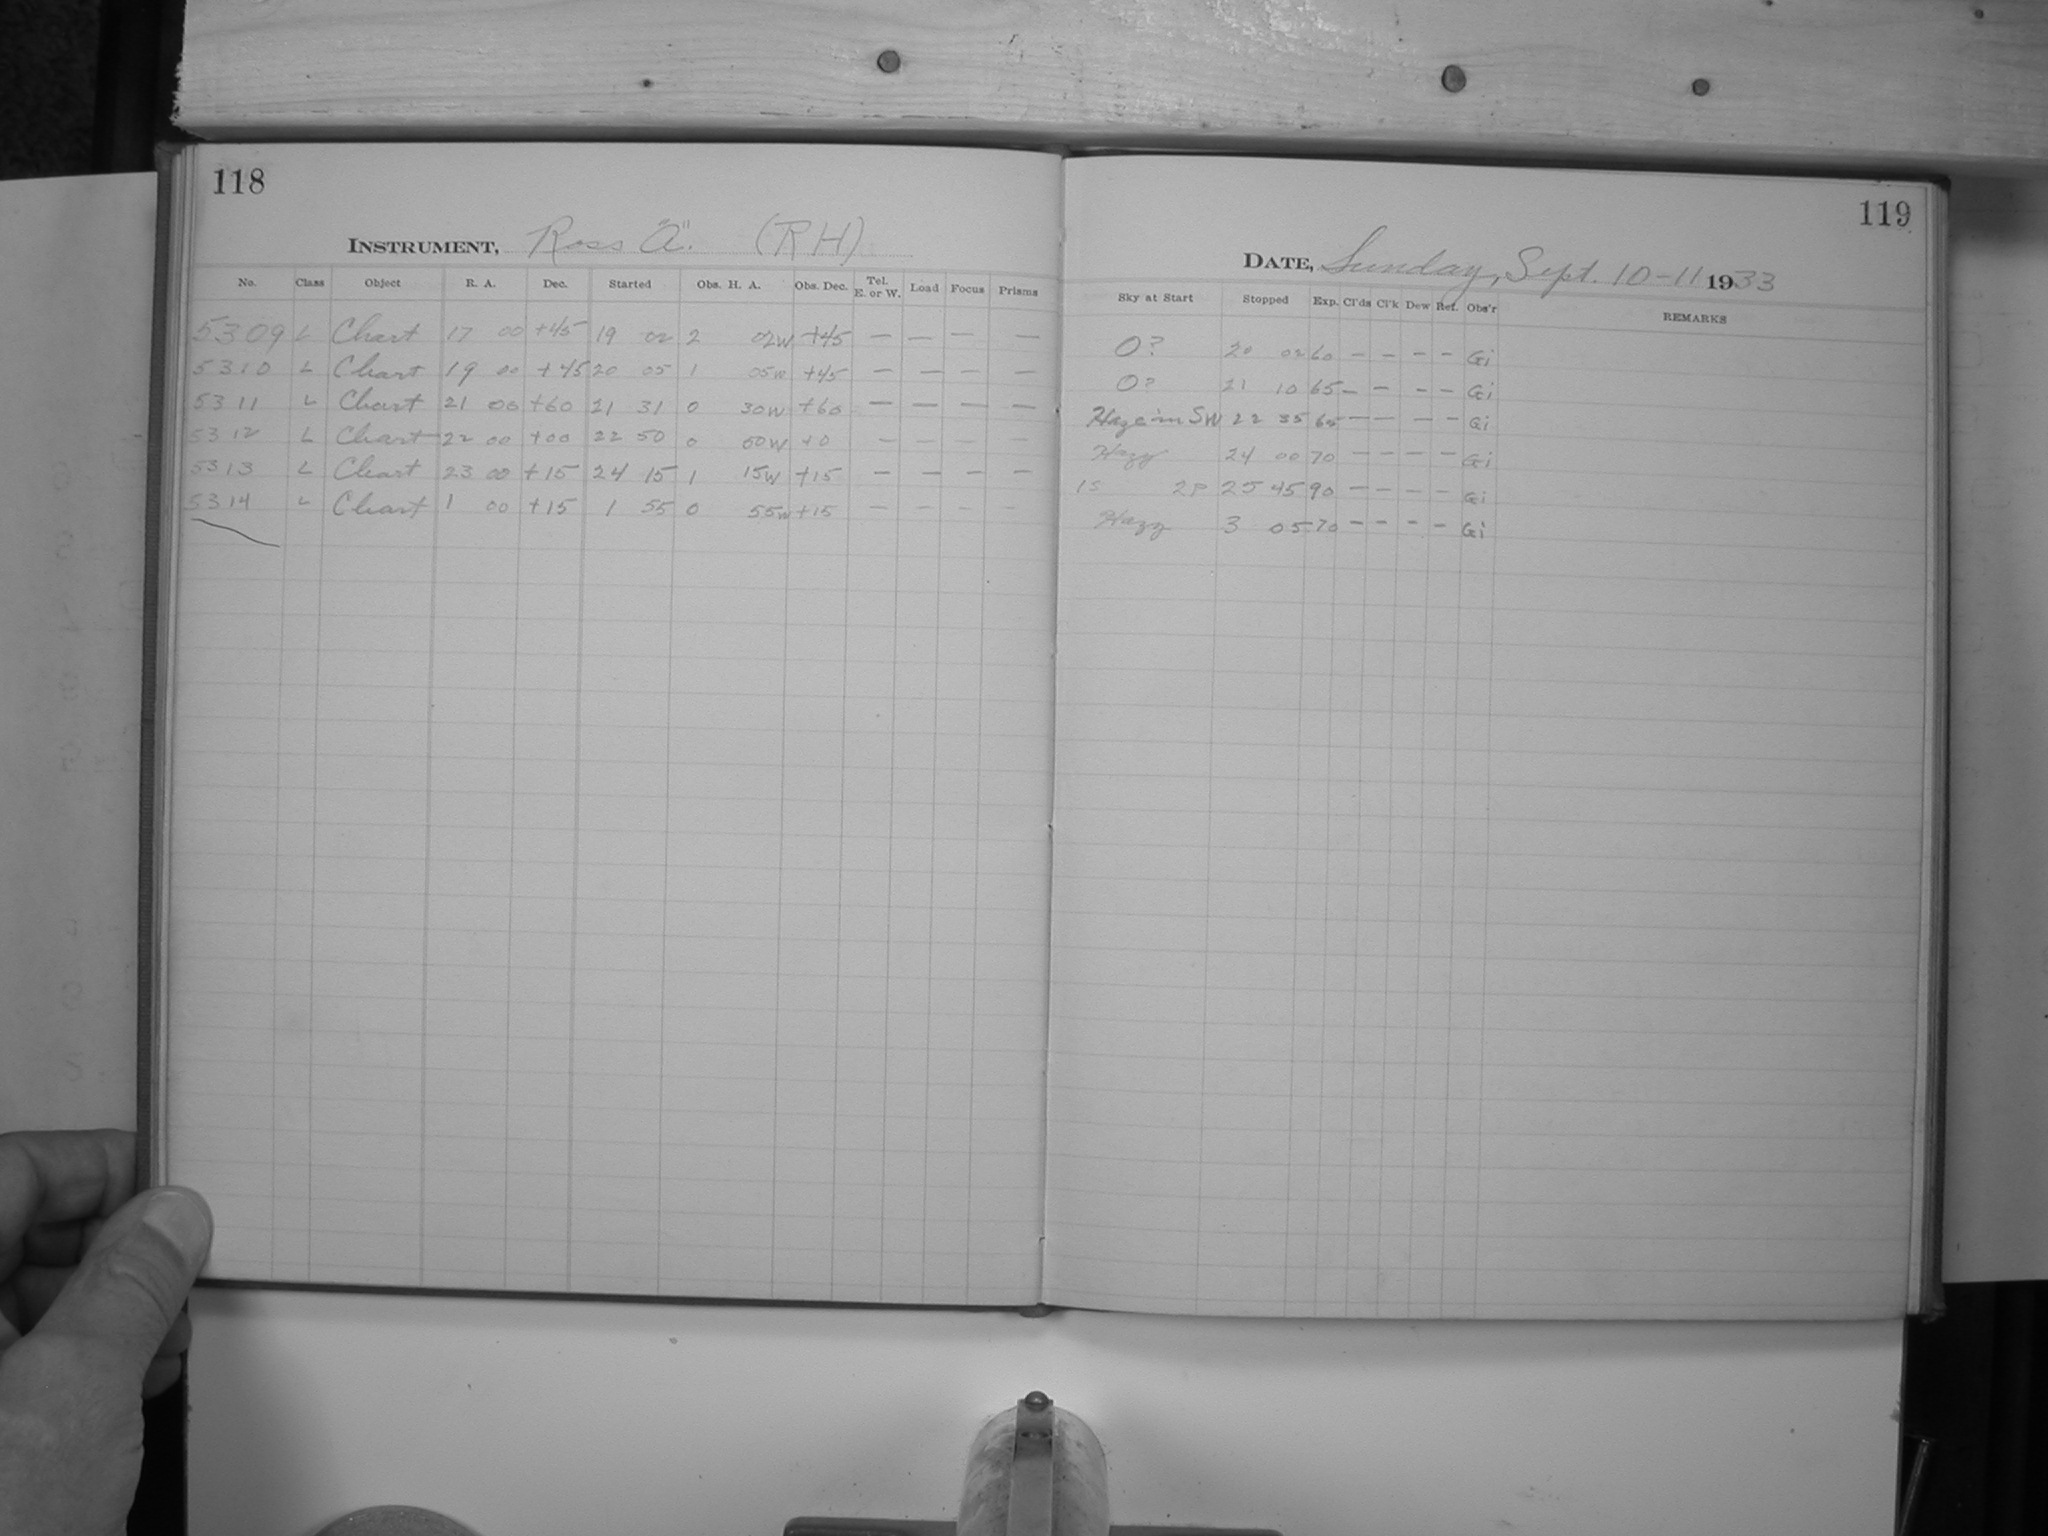 118
INSTRUMENT, Ross "A". (RH)
No. Class Object R. A. Dec. Started Obs. H. A. Obs. Dec. Tel. E. or W. Load Focus Prisms
5309 L Chart 17 00 +45 19 02 2 02W +45 — — — —
5310 L Chart 19 00 +45 20 05 1 05W +45 — — — —
5311 L Chart 21 00 +60 21 31 0 30W +60 — — — —
5312 L Chart 22 00 +00 22 50 0 50W +0 — — — —
5313 L Chart 23 00 +15 24 15 1 15W +15 — — — —
5314 L Chart 1 00 +15 1 55 0 55W +15 — — — —
119
DATE, Sunday, Sept. 10-11 1933
Sky at Start Stopped Exp. Cl'ds Cl'k Dew Ref. Obs'r REMARKS
O? 20 02 60 — — — — Gi
O? 21 10 65 — — — — Gi
Haze in SW 22 35 65 — — — — Gi
Hazy 24 00 70 — — — — Gi
1S 2P 25 45 90 — — — — Gi
Hazy 3 05 70 — — — — Gi